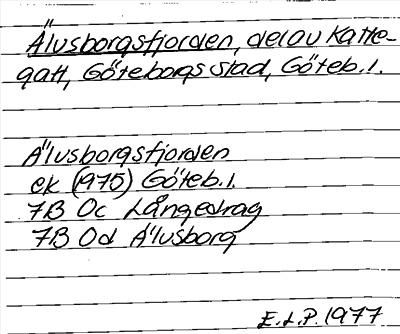 Älvsborgsfjorden, del av Katte-
gatt, Göteborgs stad, Göteb. l.
Älvsborgsfjorden
ek (1975) Göteb. l.
7B 0c Långedrag
7B 0d Älvsborg
E.L.P. 1977